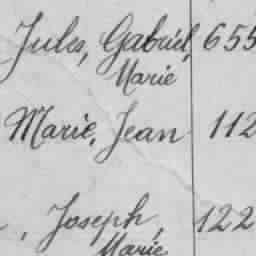 Jules, Gabriel, 655
Marie
Marie, Jean 112
, Joseph, 122
Marie